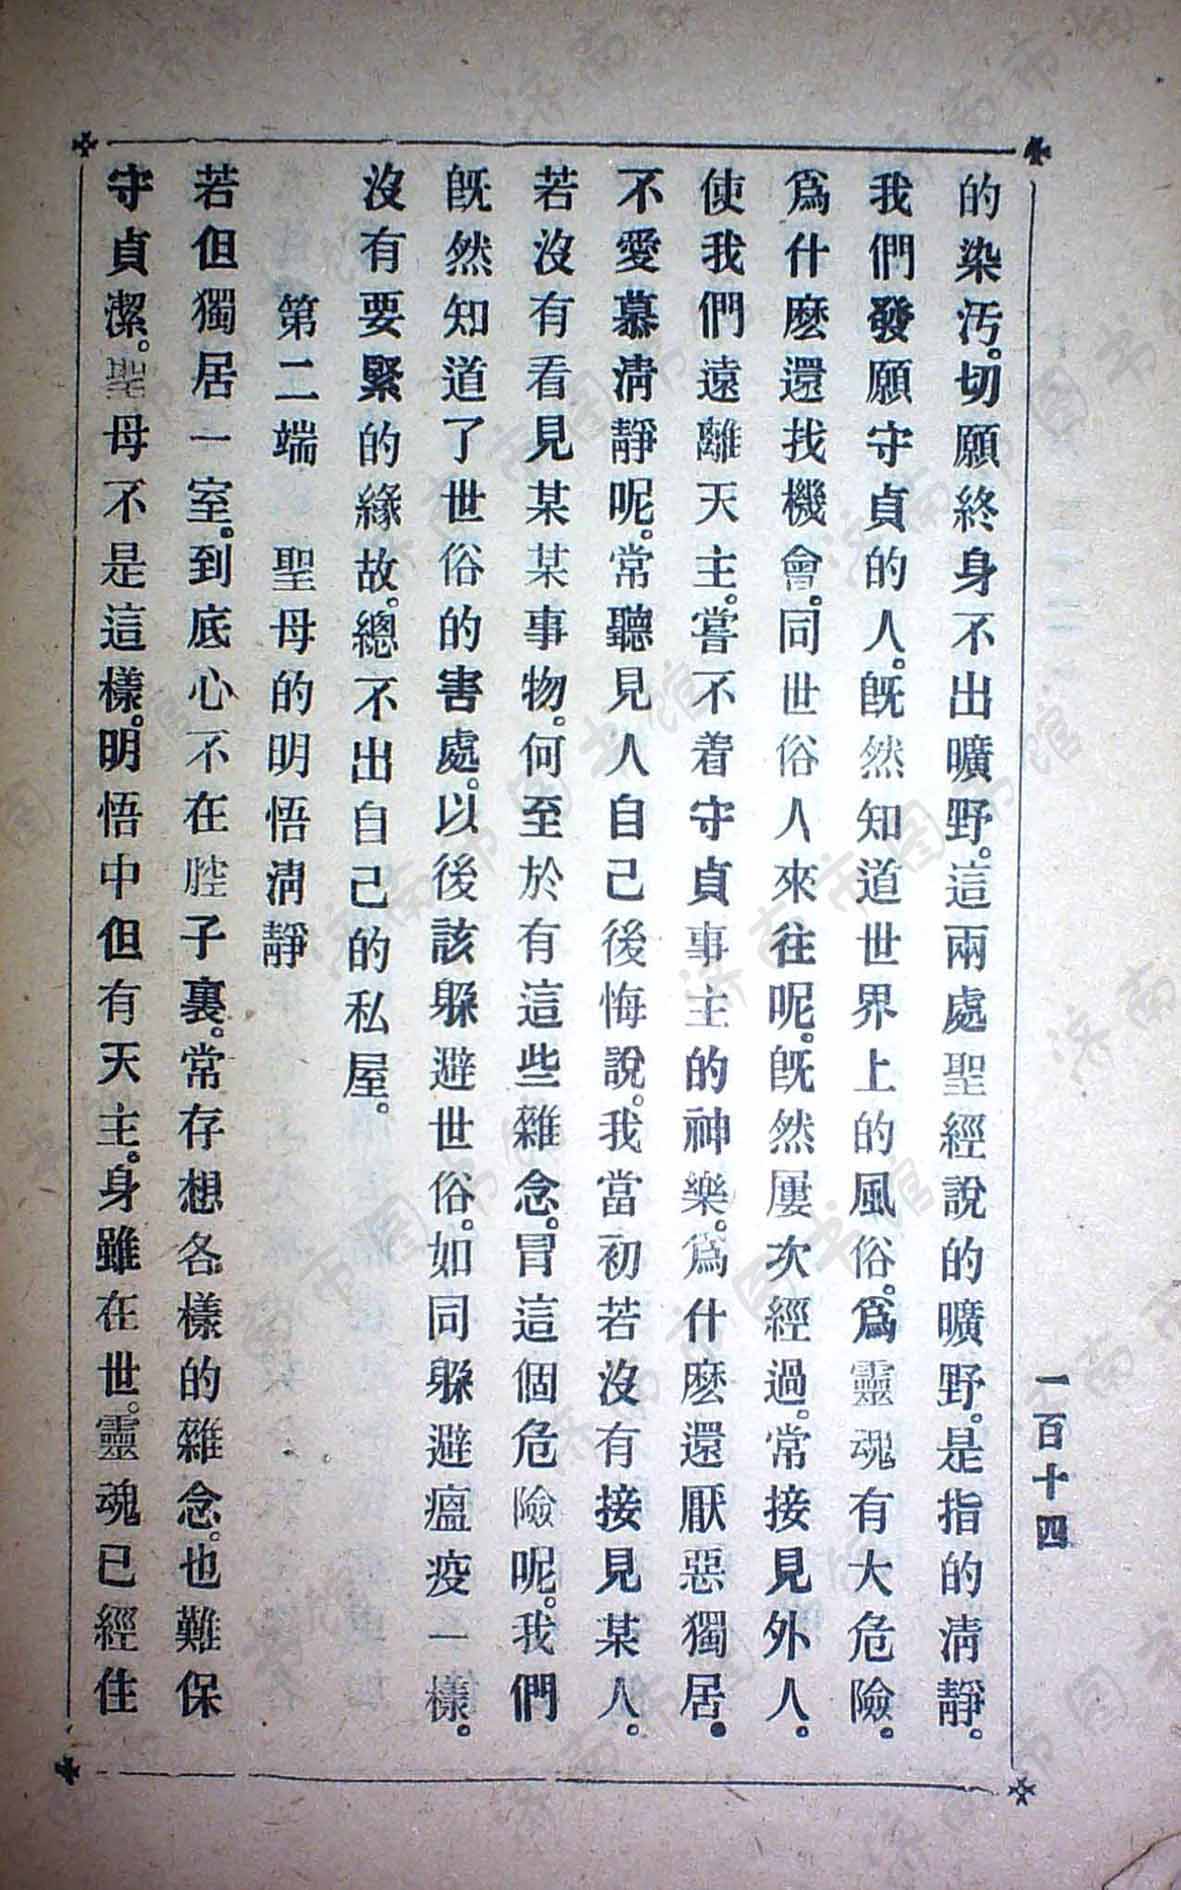 的染汚。切願終身不出曠野。這兩處聖經說的曠野。是指的淸靜。
我們發願守貞的人。旣然知道世界上的風俗。爲靈魂有大危險。
爲什麽還找機會。同世俗人來往呢。旣然屢次經過。常接見外人。
使我們遠離天主。嘗不着守貞事主的神樂。爲什麽還厭惡獨居。
不愛慕淸靜呢。常聽見人自己後悔說。我當初若沒有接見某人。
若沒有看見某某事物。何至於有這些雜念。冒這個危險呢。我們
旣然知道了世俗的害處。以後該躱避世俗。如同躱避瘟疫一樣。
沒有要緊的緣故。總不出自己的私屋。
第二端 聖母的明悟淸靜
若但獨居一室。到底心不在腔子裏。常存想各樣的雜念。也難保
守貞潔。聖母不是這樣。明悟中但有天主。身雖在世。靈魂已經住
一百十四
济南市图书馆